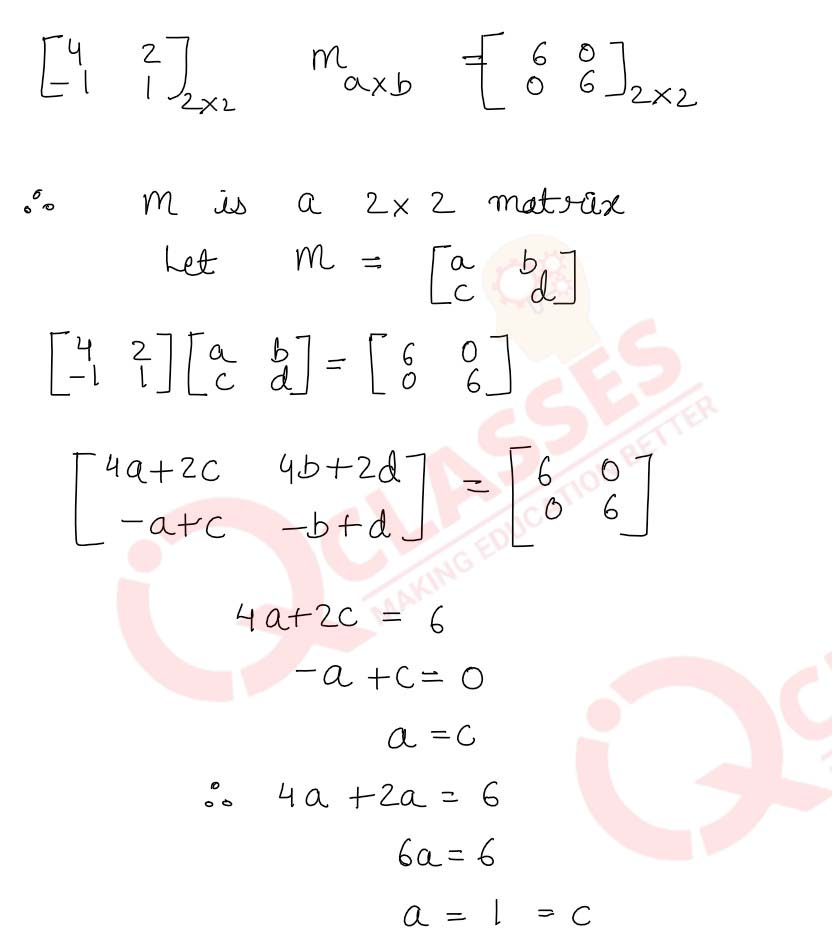 [4 2
-1 1]2×2 m a×b = [6 0
0 6]2×2
∴ m is a 2×2 matrix
Let m = [a b
c d]
[4 2
-1 1] [a b
c d] = [6 0
0 6]
[4a+2c 4b+2d
-a+c -b+d] = [6 0
0 6]
4a+2c = 6
-a+c=0
a=c
∴ 4a+2a = 6
6a=6
a = 1 = c
iQ CLASSES
MAKING EDUCATION BETTER